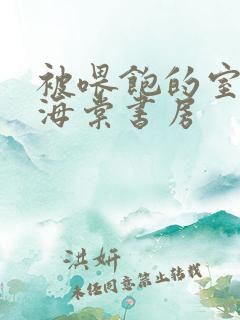 被喂饱的室
海棠书房
洪妍
未经同意禁止转载